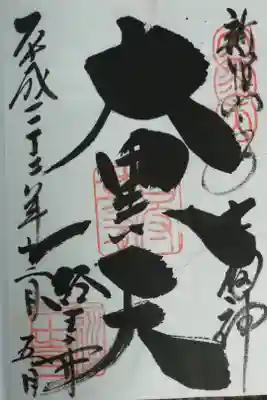 新宿山ノ手
七福神
大黒天
経王寺
平成二十三年十二月五日